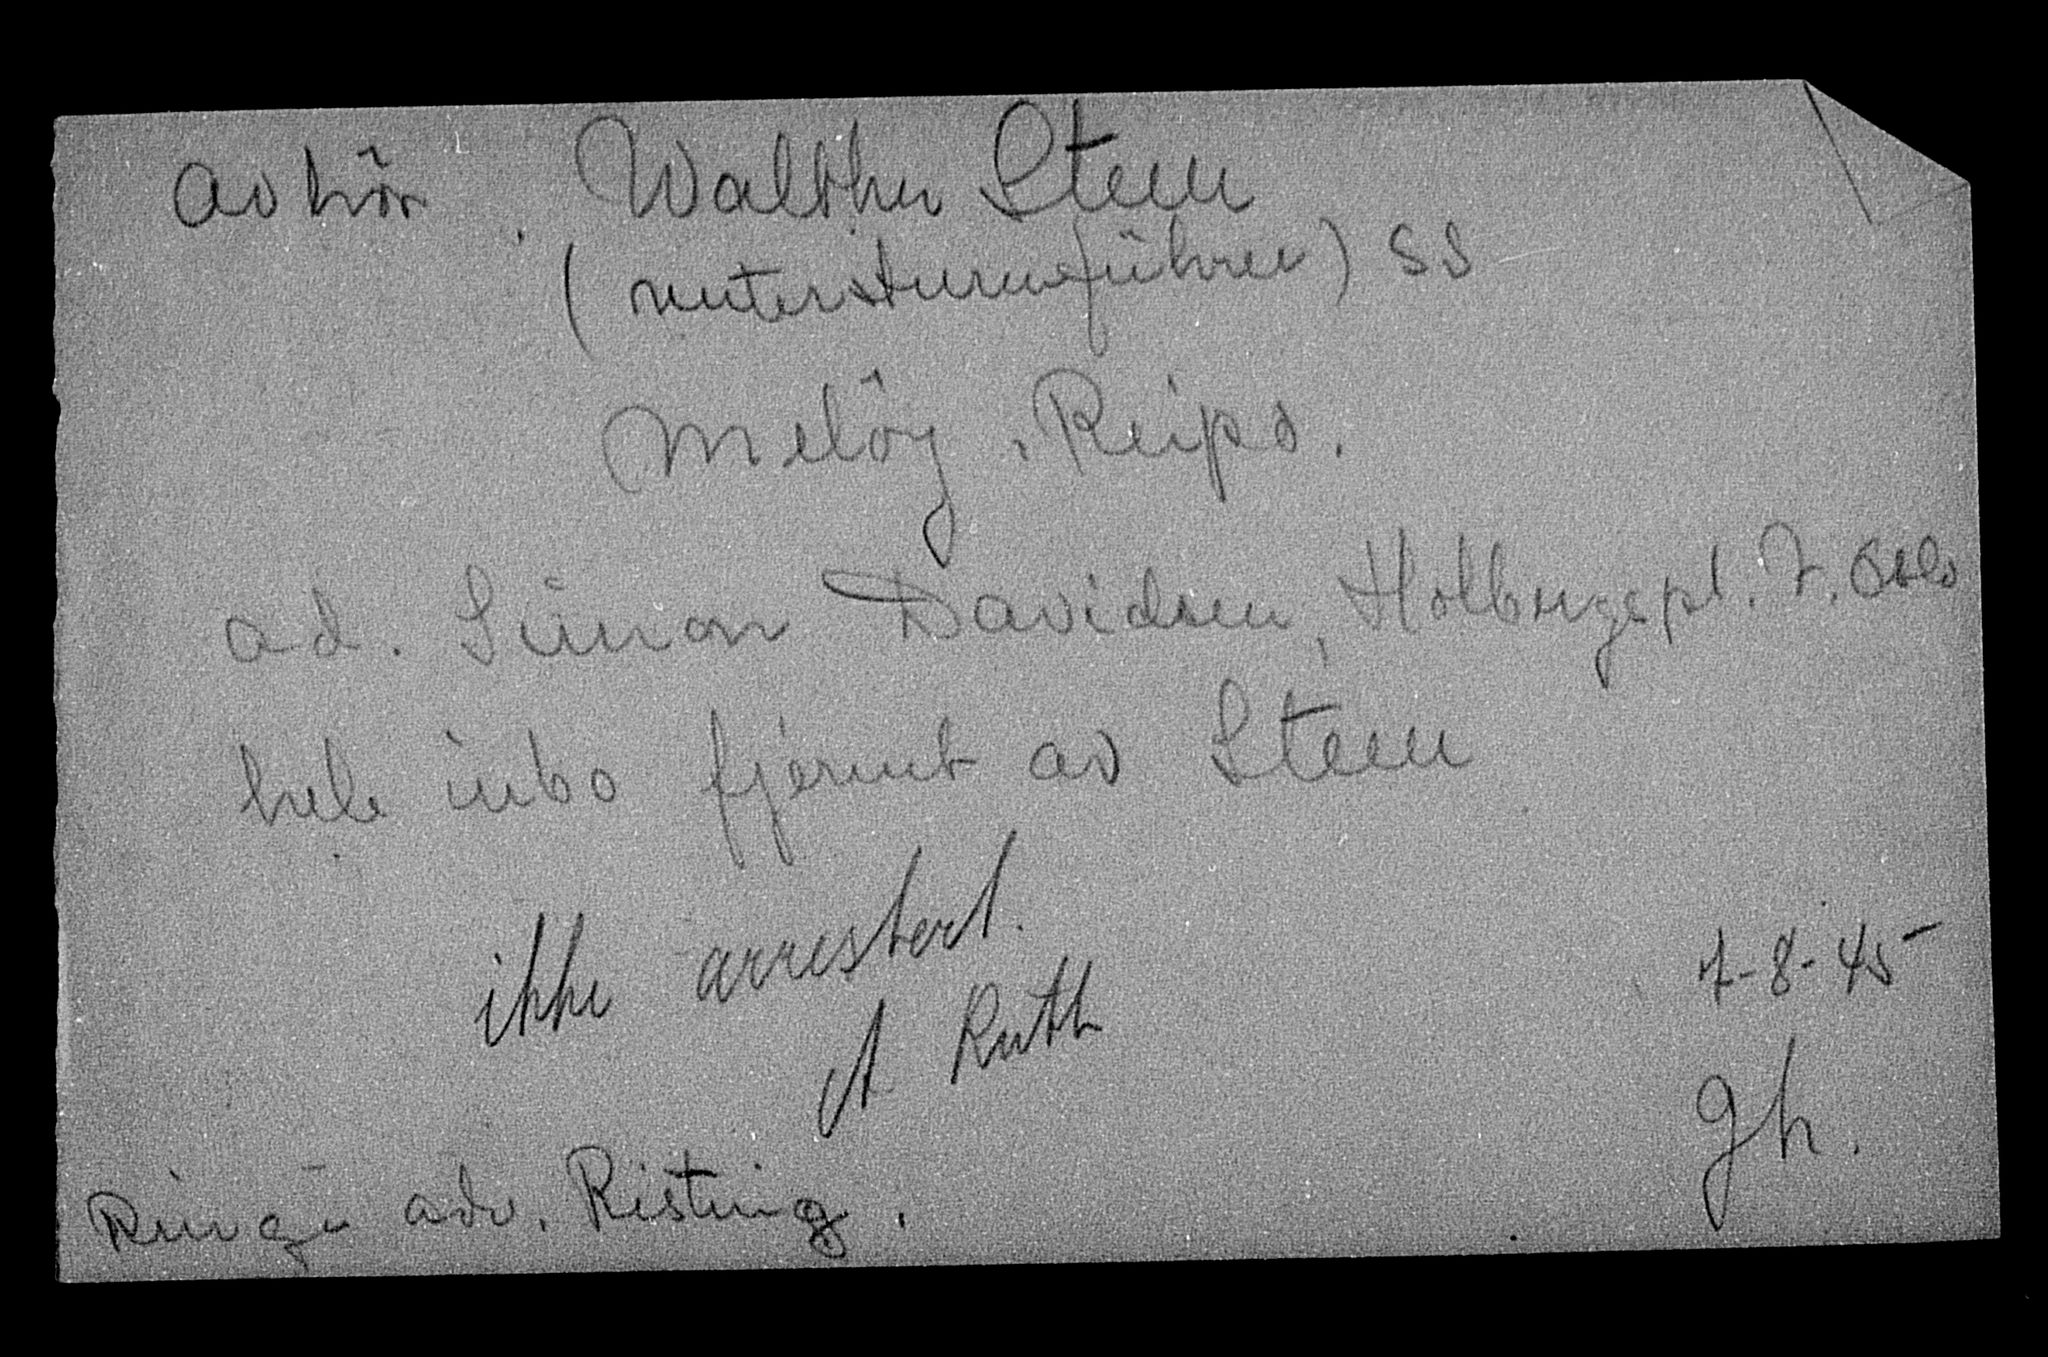 avhör Walther Steen
(untersturmführer) SS
Melöy, Reipå.
ad. Simon Davidsen, Holbergspl. 7. Oslo
hele inbo fjernet av Steen
ikke arrestert.
A Ruth
7-8-45
gh.
Ringe adv. Risting.